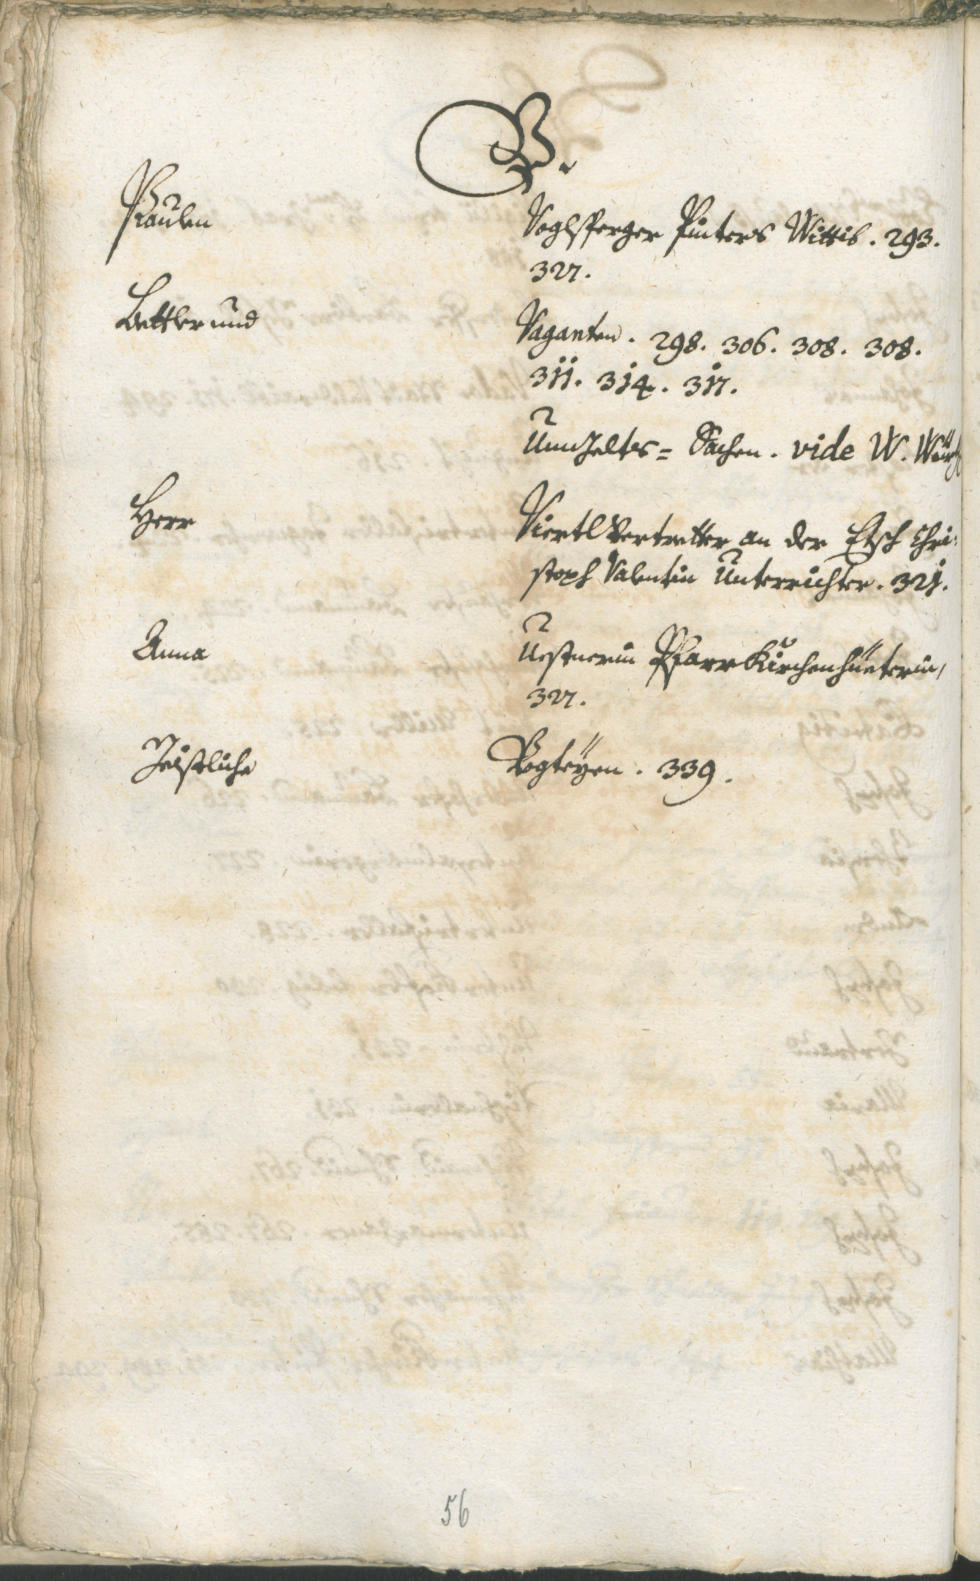 V.
Paulen Voglsperger Pinters Wittib. 293.
327.
Bettler und Vaganten. 298. 306. 308. 308.
311. 314. 317.
Umgelts= Sachen. vide W.
Herr Viertl Vertretter an der Etsch Chri-
stoph Valentin Unterrichter. 321.
Anna Pfarrkürchenhüeterin,
327.
Geistliche Vogteÿen. 339.
56